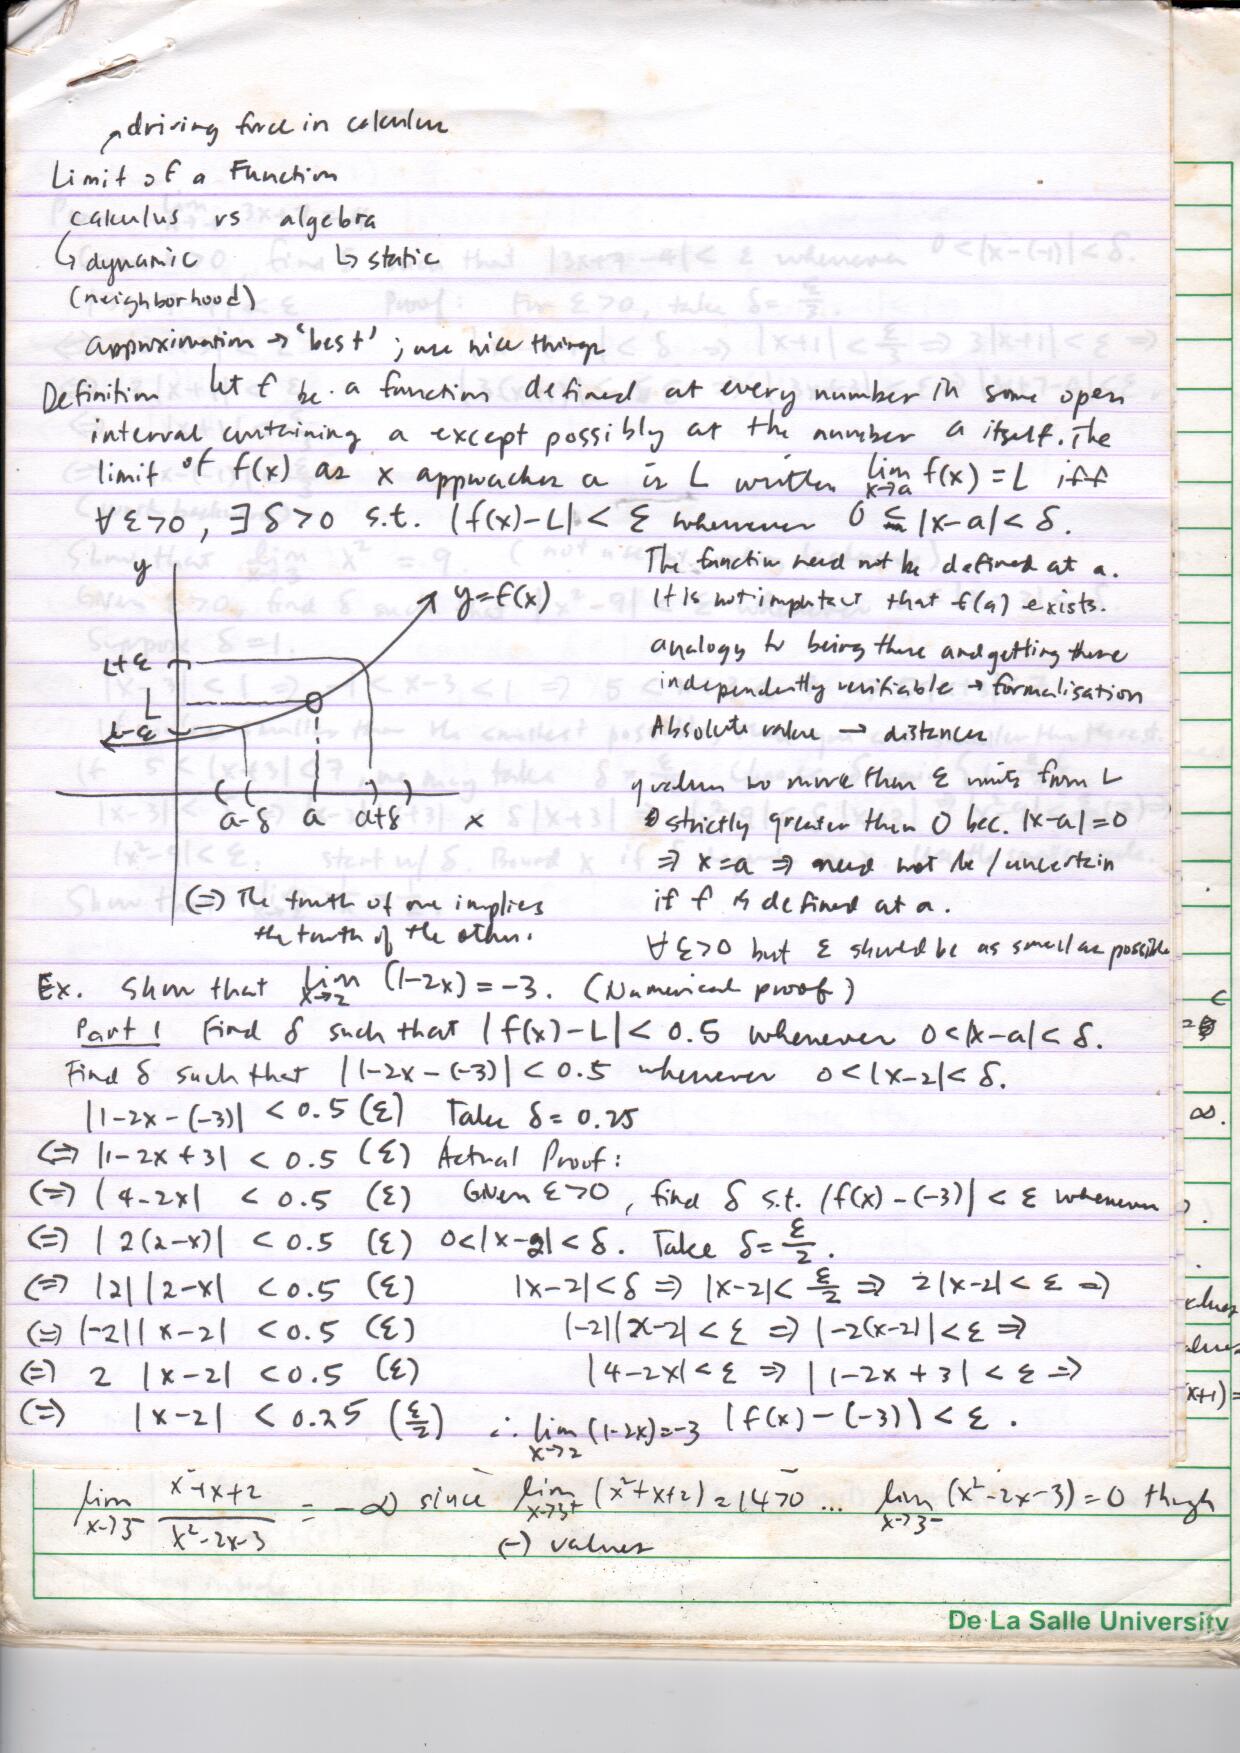 ↗driving force in calculus
Limit of a Function
calculus vs algebra
↳ dynamic ↳ static
(neighborhood)
approximation → 'best' ; use nice things
Definition Let f be a function defined at every number in some open
interval containing a except possibly at the number a itself. The
limit of f(x) as x approaches a is L written lim x→a f(x) = L iff
∀ ε>0, ∃ δ>0 s.t. |f(x)-L| < ε whenever 0 < |x-a| < δ.
y
y=f(x)
L+ε
L
L-ε
a-δ a a+δ x
The function need not be defined at a.
It is not important that f(a) exists.
analogy to being there and getting there
independently verifiable → formalisation
Absolute value → distances
y values no more than ε units from L
strictly greater than 0 bec. |x-a|=0
⇒ x=a ⇒ need not be / uncertain
if f is defined at a.
∀ ε>0 but ε should be as small as possible
(⇔) The truth of one implies
the truth of the other.
Ex. Show that lim x→2 (1-2x) = -3. (Numerical proof)
Part 1 Find δ such that |f(x)-L| < 0.5 whenever 0<|x-a|< δ.
Find δ such that |1-2x-(-3)| < 0.5 whenever 0<|x-2|< δ.
|1-2x-(-3)| < 0.5 (ε) Take δ = 0.25
⇔ |1-2x+3| < 0.5 (ε)
⇔ |4-2x| < 0.5 (ε)
⇔ |2(2-x)| < 0.5 (ε)
⇔ |2||2-x| < 0.5 (ε)
⇔ |-2||x-2| < 0.5 (ε)
⇔ 2 |x-2| < 0.5 (ε)
⇔ |x-2| < 0.25 (ε/2)
Actual Proof:
Given ε>0, find δ s.t. |f(x)-(-3)| < ε whenever
0<|x-2|< δ. Take δ = ε/2.
|x-2|< δ ⇒ |x-2| < ε/2 ⇒ 2|x-2| < ε ⇒
|-2||x-2| < ε ⇒ |-2(x-2)| < ε ⇒
|4-2x| < ε ⇒ |1-2x+3| < ε ⇒
|f(x)-(-3)| < ε.
∴ lim x→2 (1-2x) = -3
lim x→3⁻ (x²+x+2)/(x²-2x-3) = -∞ since lim x→3⁺ (x²+x+2) = 14>0 ... lim x→3⁻ (x²-2x-3) = 0 through
(-) values
De La Salle University